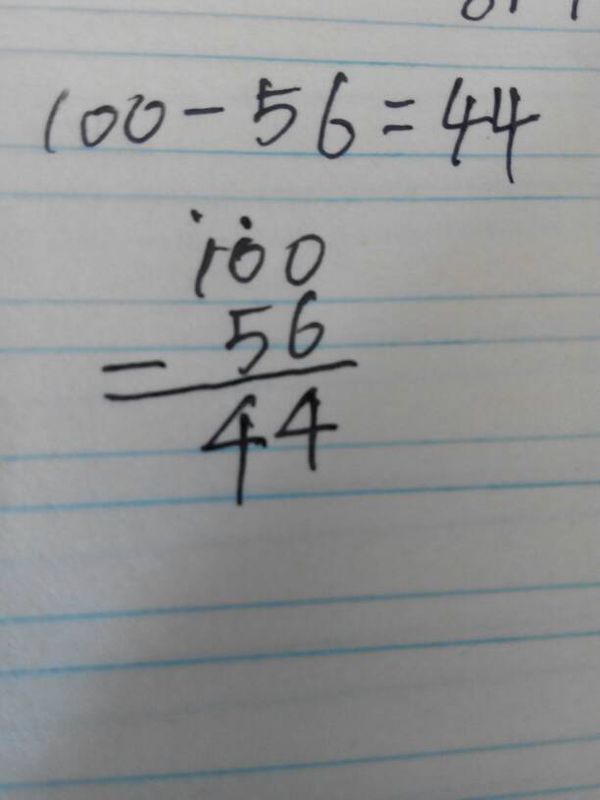 100-56=44
100
- 56
44